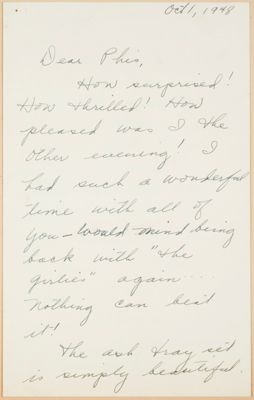 Oct 1, 1948
Dear Phis,
How surprised!
How thrilled! How
pleased was I the
other evening! I
had such a wonderful
time with all of
you – would mind being
back with "the
girlies" again....
Nothing can beat
it!
The ash tray set
is simply beautiful.